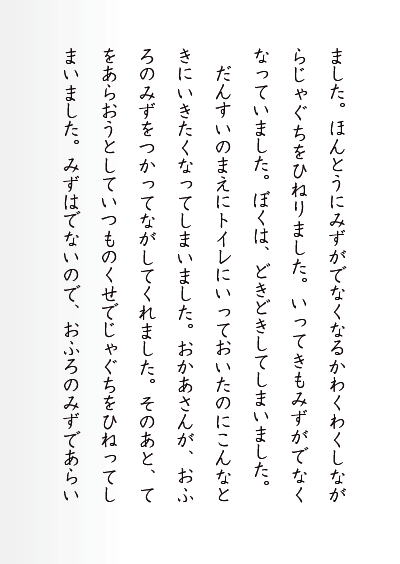 ました。ほんとうにみずがでなくなるかわくわくしなが
らじゃぐちをひねりました。いってきもみずがでなく
なっていました。ぼくは、どきどきしてしまいました。
だんすいのまえにトイレにいっておいたのにこんなと
きにいきたくなってしまいました。おかあさんが、おふ
ろのみずをつかってながしてくれました。そのあと、て
をあらおうとしていつものくせでじゃぐちをひねってし
まいました。みずはでないので、おふろのみずであらい